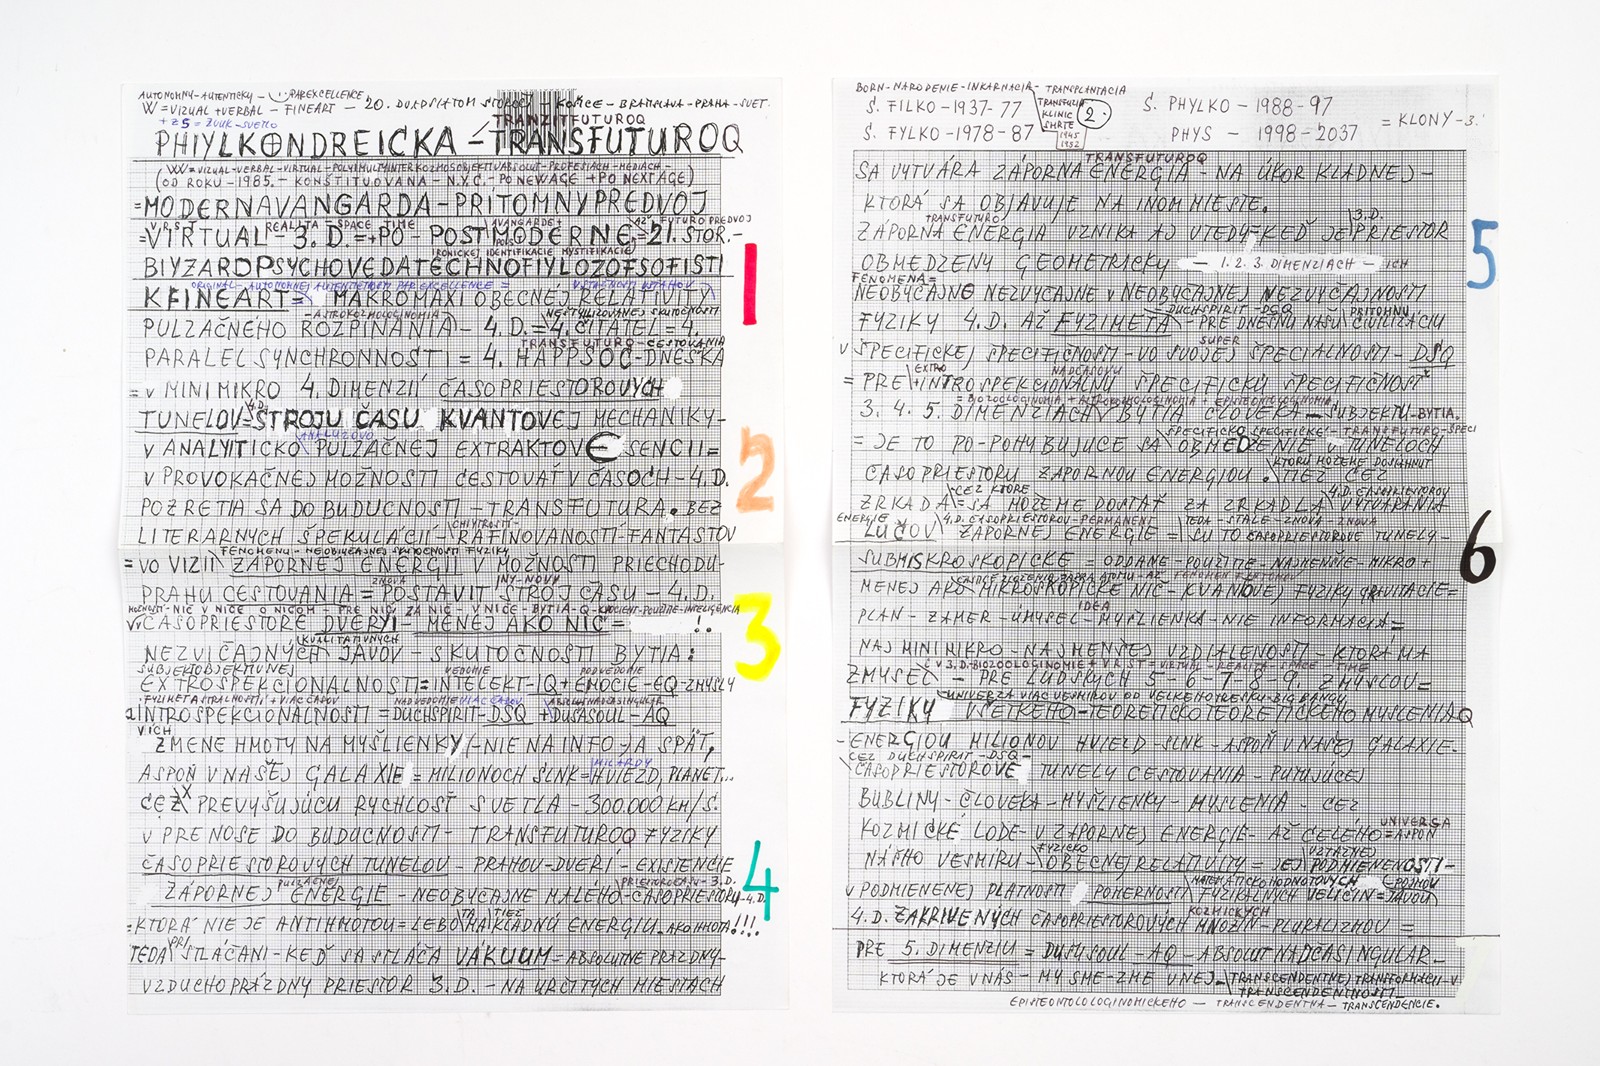 AUTONOMNY-AUTENTICKY- PAREXCELLENCE
W=VIZUAL+VERBAL-FINEART-20. STOROČÍ-KOŠICE-BRATISLAVA-PRAHA-SVET.
+Z5=ZVUK-SVETLO
TRANZITFUTUROQ
PHIYLKONDREICKA-TRANSFUTUROQ
(OD ROKU-1985.-KONŠTITUOVANA-N.Y.C.-PO NEWAGE+PO NEXTAGE)
=MODERNAVANGARDA-PRÍTOMNÝPREDVOJ
REALITA-SPACE TIME AVANGARDE+ AŽ FUTURO PREDVOJ
=VIRTUAL-3.D.=+PO-POSTMODERNE=21.STOR.-
IRONICKEJ IDENTIFIKACIE MYSTIFIKACIE
BIYZARDPSYCHOVEDATECHNOFIYLOZOFSOFISTI
1
ORIGINAL-AUTONOMNEJ AUTENTICITOSTI PAR EXCELLENCE= VZTAŽNOSTI VZŤAHOV
KFINEART= MAKROMAXI OBECNEJ RELATIVITY
-ASTROKOZMOLOGINOMIA- NEŠTYLIZOVANEJ SKUTOČNOSTI
PULZAČNÉHO ROZPÍNANIA-4.D.=4.ČITATEL=4.
TRANSFUTURO-CESTOVANIA
PARALEL SYNCHRONNOSTI=4.HAPPSOC-DNEŠKA
=V MINIMIKRO 4.DIMENZIÍ ČASOPRIESTOROVÝCH
4.D.
TUNELOV=STROJU ČASU KVANTOVEJ MECHANIKY-
V ANALYITICKO PULZAČNEJ EXTRAKTOVE SENCII=
2
V PROVOKAČNEJ MOŽNOSTI CESTOVAŤ V ČASOCH-4.D.
POZRETIA SA DO BUDUCNOSTI-TRANSFUTURA. BEZ
CHYTROSTI-
LITERARNYCH ŠPEKULÁCIÍ-RAFINOVANOSTI-FANTASTOV
FENOMENU-NEOBYČAJNEJ SKUTOČNOSTI FYZIKY
=VO VIZII ZAPORNEJ ENERGII V MOŽNOSTI PRIECHODU-
ZNOVA INY-NOVY
PRAHU CESTOVANIA=POSTAVIT STROJ ČASU-4.D.
3
V ČASOPRIESTORE DVERYI-MENEJ AKO NIČ= !.
KVALITATIVNYCH
NEZVIČAJNÝCH JAVOV-SKUTOČNOSTI BYTIA:
SUBJEKTOBJEKTIVNEJ VEDOMIE PODVEDOMIE
EXTROSPEKCIONALNOSTI=INTELEKT-IQ+EMOCIE-EQ-ZMYSLY
NADVEDOMIE VIAC ČASOV ABSOLUTNADČASINGULAR
aINTROSPEKCIONALNOSTI=DUCHSPIRIT-DSQ+DUŠASOUL-AQ
ZMENE HMOTY NA MYŠLIENKY/-NIE NA INFO-A SPÄT,
MILIARDY
ASPOŇ V NAŠEJ GALAXIE=MILIONOCH SLNK=HVIEZD,PLANET...
CEZ PREVYŠUJÚCU RYCHLOSŤ SVETLA-300.000KM/S.
V PRENOSE DO BUDUCNOSTI-TRANSFUTUROQ FYZIKY
ČASOPRIESTOROVYCH TUNELOV-PRAHOU-DVERI-EXISTENCIE
4
PULZAČNEJ PRIESTOROČASU-3.D.
ZÁPORNEJ ENERGIE-NEOBYČAJNE MALÉHO-ČASOPRIESTORU-4.D.
=KTORÁ NIE JE ANTIHMOTOU=LEBO TÁ MA TIEŽ KLADNÚ ENERGIU-AKO HMOTA!!!
TEDA PRI STLÁČANI-KEĎ SA STLÁČA VÁKUUM=ABSOLUTNE PRAZDNY-
VZDUCHOPRÁZDNY PRIESTOR 3.D.-NA URČITÝCH MIESTACH
BORN-NARODENIE-INKARNACIA-TRANSPLANTACIA
Š. FILKO-1937-77
TRANSFUZIA KLINIC SMRTE 1945 1952
2.
Š. PHYLKO-1988-97
Š. FYLKO-1978-87
PHYS-1998-2037 =KLONY-3.
TRANSFUTUROQ
SA VYTVÁRA ZÁPORNA ENERGIA-NA ÚKOR KLADNEJ-
KTORÁ SA OBJAVUJE NA INOM MIESTE.
TRANSFUTURO 3.D.
ZÁPORNA ENERGIA VZNIKA AJ VTEDY-KEĎ JE PRIESTOR
5
OBMEDZENY GEOMETRICKY -1.2.3. DIMENZIACH-ICH
FENOMENA=
NEOBYČAJNE NEZVYČAJNE V NEOBYČAJNEJ NEZVYČAJNOSTI
DUCHSPIRIT-DSQ PRITOMNU
FYZIKY 4.D. AŽ FYZIMETA-PRE DNEŠNU NAŠU CIVILIZACIU
SUPER
V ŠPECIFICKEJ ŠPECIFIČNOSTI-VO SVOJEJ ŠPECIALNOSTI-DSQ
EXTRO NADČASOVU
=PRE+INTROSPEKCIONALNU ŠPECIFICKÚ ŠPECIFICNOSŤ
3.4.5. DIMENZIACH BYTIA ČLOVEKA-SUBJEKTU-BYTIA.
ŠPECIFICKO ŠPECIFICKÉ-TRANSFUTURO-ŠPECI
=JE TO PO-POHYBUJUCE SA OBMEDZENIE V TUNELOCH
KTORU MOŽEME DOSIAHNUT
ČASOPRIESTORU ZAPORNOU ENERGIOU. TIEŽ CEZ
CEZ KTORE 4.D. ČASOPRIESTOROV
ZRKADLA=SA MOŽEME DOSTAŤ ZA ZRKADLA VYTVÁRANIA
ENERGIE 4.D. ČASOPRIESTOROV-PERMANENT TEDA-STALE-ZNOVA-ZNOVA
LÚČOV ZÁPORNEJ ENERGIE=SU TO ČASOPRIESTOROVE TUNELY-
6
SUBMISKROSKOPICKE=ODDANE-POUŽITE-NAJMENŠIE-MIKRO+
MENEJ AKO MIKROSKOPICKE NIČ-KVANTOVEJ FYZIKY GRAVITACIE=
IDEA
PLAN-ZAMER-ÚMYSEL-MYŠLIENKA-NIE INFORMACIA=
NAJ MINI MIKRO-NAJMENŠEJ VZDIALENOSTI-KTORA MA
V 3.D.-BIOZOOLOGINOMIE+V.R.ST=VIRTUAL-REALITA-SPACE TIME
ZMYSEL-PRE ĽUDSKYCH 5-6-7-8-9. ZMYSLOV=
UNIVERZA VIAC VESMIROV OD VELKEHOTRESKU-BIG BANGU
FYZIKY VŠETKEHO-TEORETICKOTEORETICKÉHO MYSLENIAQ
-ENERGIOU MILIONOV HVIEZD-SLNK-ASPOŇ V NAŠEJ GALAXIE-
CEZ DUCHSPIRIT-DSQ-
ČASOPRIESTOROVÉ TUNELY CESTOVANIA-PUTUJÚCEJ
BUBLINY-ČLOVEKA-MYŠLIENKY-MYSLENIA-CEZ
UNIVERZA
KOZMICKÉ LODE-V ZAPORNEJ ENERGIE-AŽ CELÉHO=ASPOŇ
FYZICKO VZTAŽNEJ
NÁŠHO VESMÍRU-OBECNEJ RELATIVITY=JEJ PODMIENENOSTI-
MATEMATICKO HODNOTOVYCH POJMOV
V PODMIENENEJ PLATNOSTI POMERNOSTI FYZIKALNYCH VELIČIN=JAVOU
KOZMICKYCH
4.D. ZAKRIVENÝCH ČASOPRIESTOROVÝCH MNOŽIN-PLURALIZMOU=
PRE 5. DIMENZIU=DUŠYSOUL-AQ-ABSOLUTNADČASINGULAR-
KTORÁ JE V NÁS-MY SME-ZME V NEJ-TRANSCENDENTNEJ TRANSFORMACII-V
TRANSCENDENTNOSTI-
EPISTEONTOLOLOGINOMICKEHO-TRANSCENDENTNA-TRANSCENDENCIE.